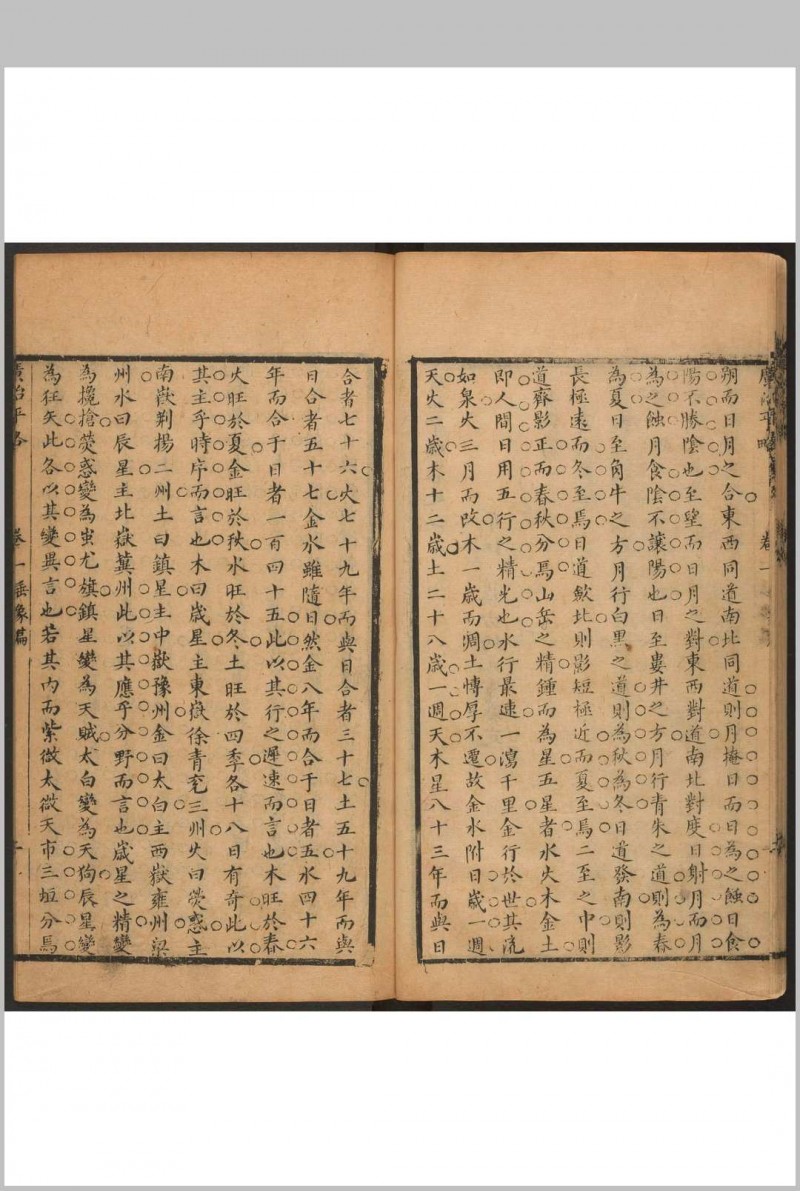 廣治平略 卷一
朔而日月之合東西同道南北同道則月掩日而日為之蝕日食
陽不勝陰也至望而日月之對東西對道南北對度日射月而月
為之蝕月食陰不讓陽也日至婁井之方月行青朱之道則為春
為夏日至角牛之方月行白黑之道則為秋為冬日道發南則影
長極遠而冬至焉日道歛北則影短極近而夏至焉二至之中則
道齊影正而春秋分焉山岳之精鍾而為星五星者水火木金土
即人間日用五行之精光也水行最速一瀉千里金行於世其流
如泉火三月而改木一歲而凋土慱厚不遷故金水附日歲一週
天火二歲木十二歲土二十八歲一週天木星八十三年而與日
合者七十六火七十九年而與日合者三十七土五十九年而與
日合者五十七金水雖隨日然金八年而合于日者五水四十六
年而合于日者一百四十五此以其行之遲速而言也木旺於春
火旺於夏金旺於秋水旺於冬土旺於四季各十八日有奇此以
其主乎時序而言也木曰歲星主東嶽徐青兗三州火曰熒惑主
南嶽荆揚二州土曰鎮星主中嶽豫州金曰太白主西嶽雍州梁
州水曰辰星主北嶽冀州此以其應乎分野而言也歲星之精變
為攙搶熒惑變為蚩尤旗鎮星變為天賊太白變為天狗辰星變
為枉矢此各以其變異言也若其內而紫微太微天市三垣分焉
廣治平略 卷一 垂象篇